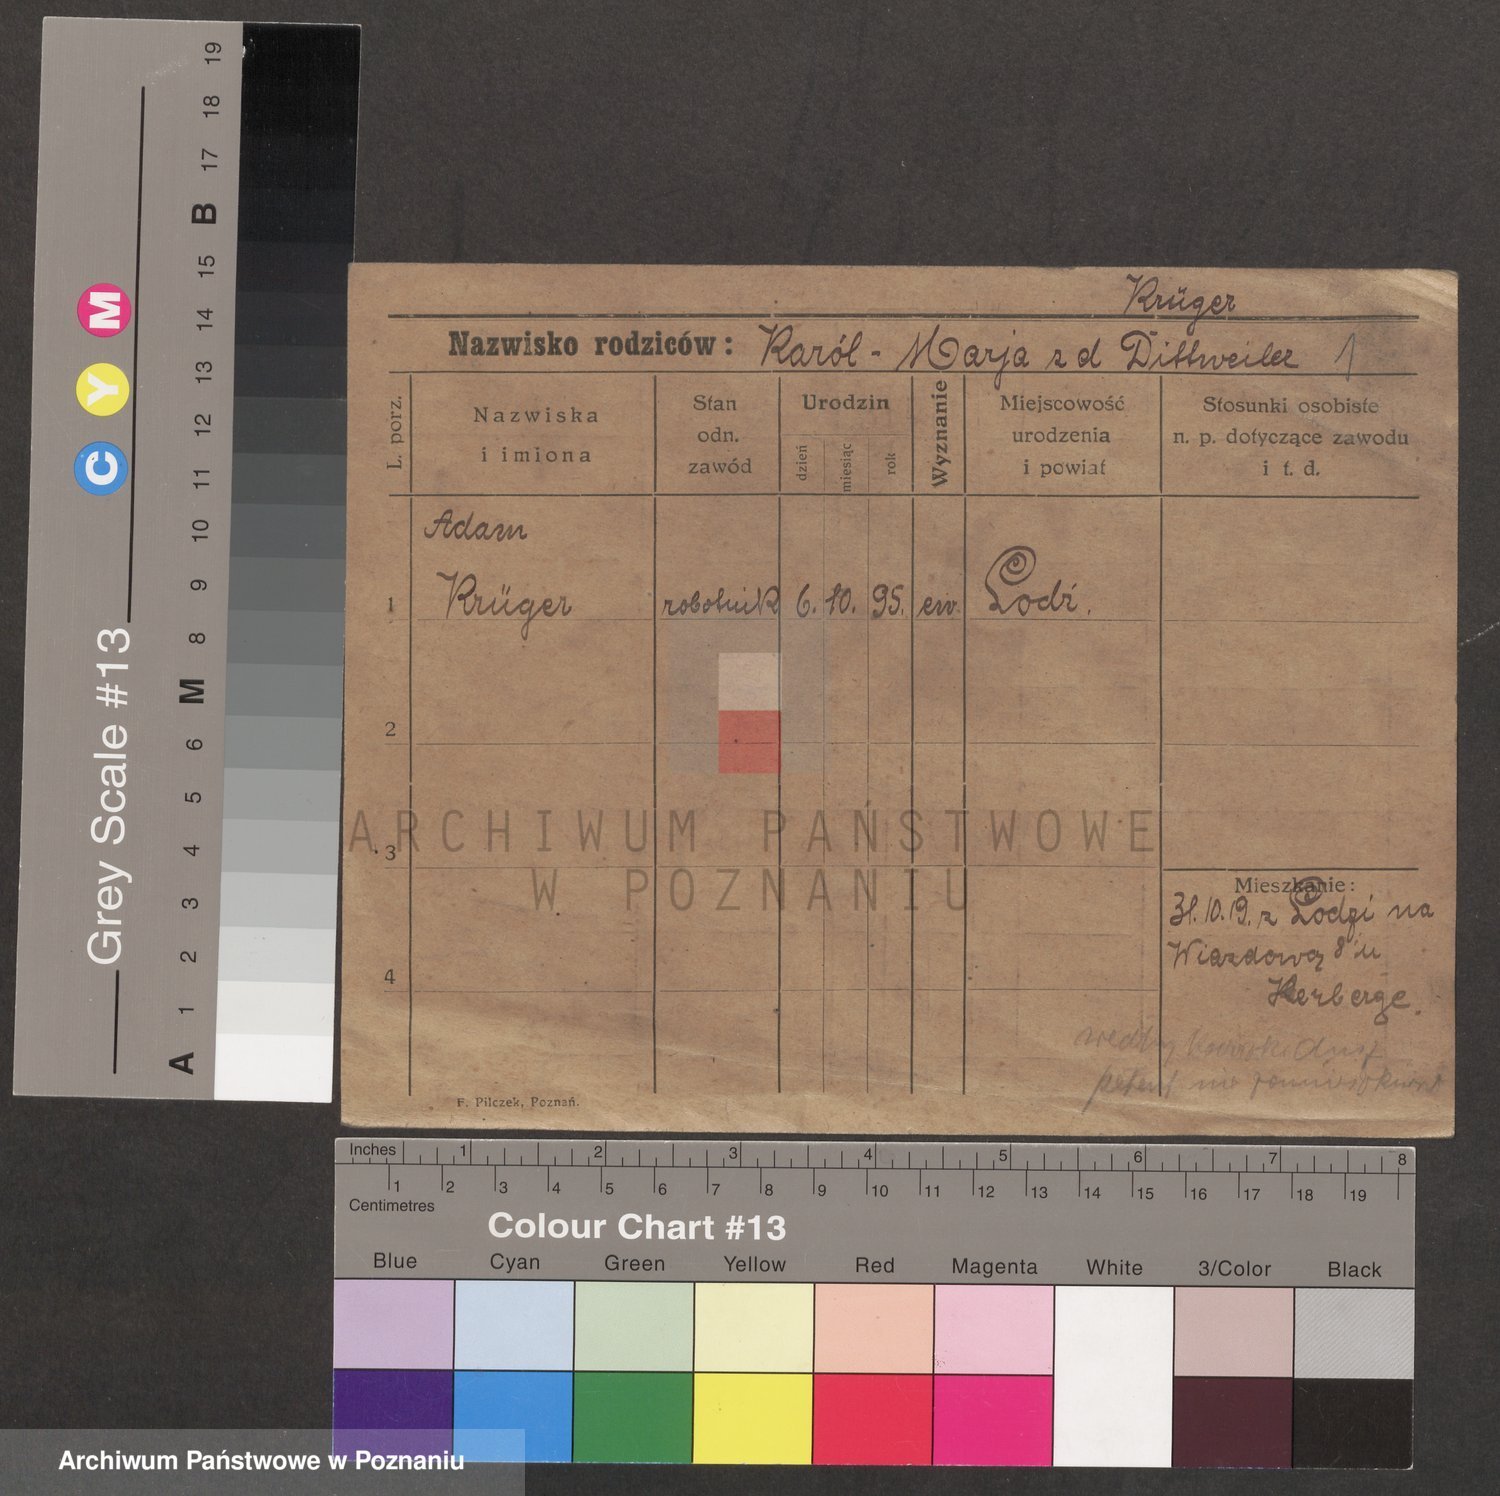 Krüger
Nazwisko rodziców: Karól - Marja z d Dittweiler 1
L. porz.
Nazwiska
i imiona
Stan
odn.
zawód
Urodzin
dzień
miesiąc
rok
Wyznanie
Miejscowość
urodzenia
i powiat
Stosunki osobiste
n. p. dotyczące zawodu
i t. d.
Adam
1 Krüger robotnik 6. 10. 95. ew. Łodź.
2
3
4
Mieszkanie:
31.10.19. z Łodzi na
Wiazdową 8 u
Herberge.
F. Pilczek, Poznań.
ARCHIWUM PAŃSTWOWE
W POZNANIU
Grey Scale #13
C Y M
A 1 2 3 4 5 6 M 8 9 10 11 12 13 14 15 B 17 18 19
Inches 1 2 3 4 5 6 7 8
1 2 3 4 5 6 7 8 9 10 11 12 13 14 15 16 17 18 19
Centimetres
Colour Chart #13
Blue Cyan Green Yellow Red Magenta White 3/Color Black
Archiwum Państwowe w Poznaniu